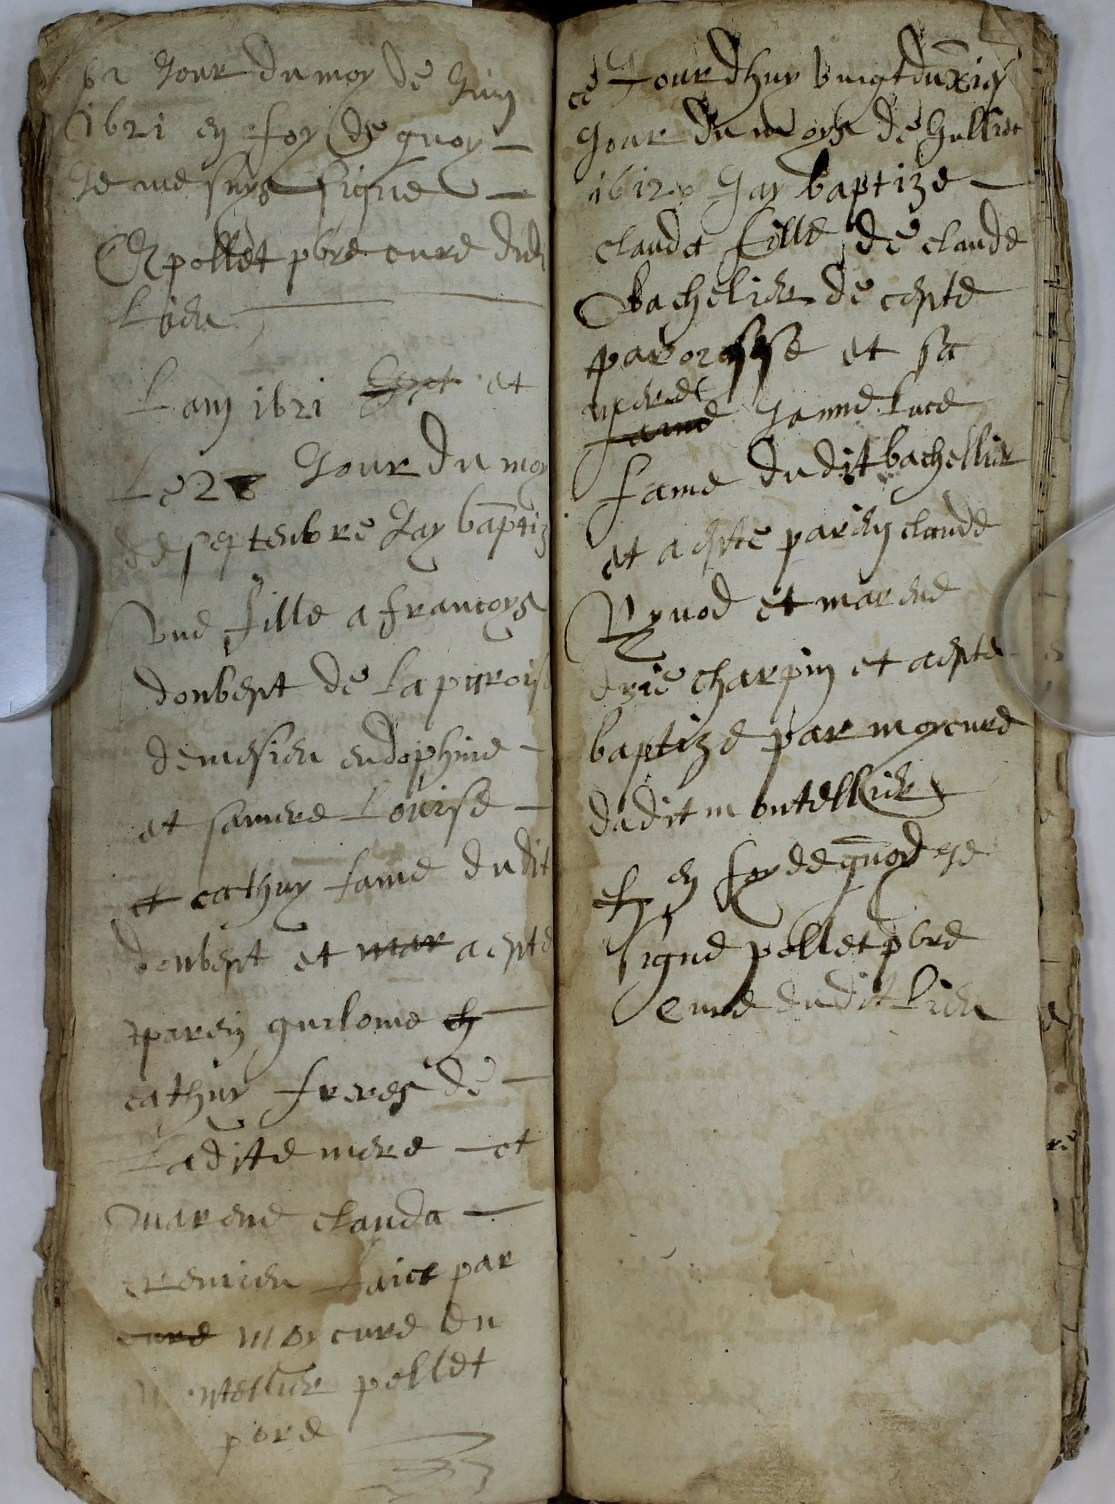 Jour du moy de Juin
1621 en foy de quoy
Je me suys signe
Pollet pbre cure dudi
Lieu
Lan 1621 et
Le 28 Jour du moy
de septenbre Jay baptiz
Une fille a francoys
donbept de La parroiss
de mesieu endophine
et sa mere Louise
et cathuy fame dudit
donbept et mar a este
parein guilome
cathuy freres de
Ladite mere et
marene clauda
par
cure moy cure du
montellier pollet
pbre
ce Jourdhuy vingtduxieg
Jour du moys de Jullier
1612 Jay baptize
clauda fille de claude
Bachelier de ceste
paroisse et sa
mere
fame Janne Luce
fame dudit bachellier
et a este parein claude
Rynod et marene
charpin et a este
baptize par moy cure
dudit montellier
en foy de quod Je
signe pollet pbre
cure dudit Lieu